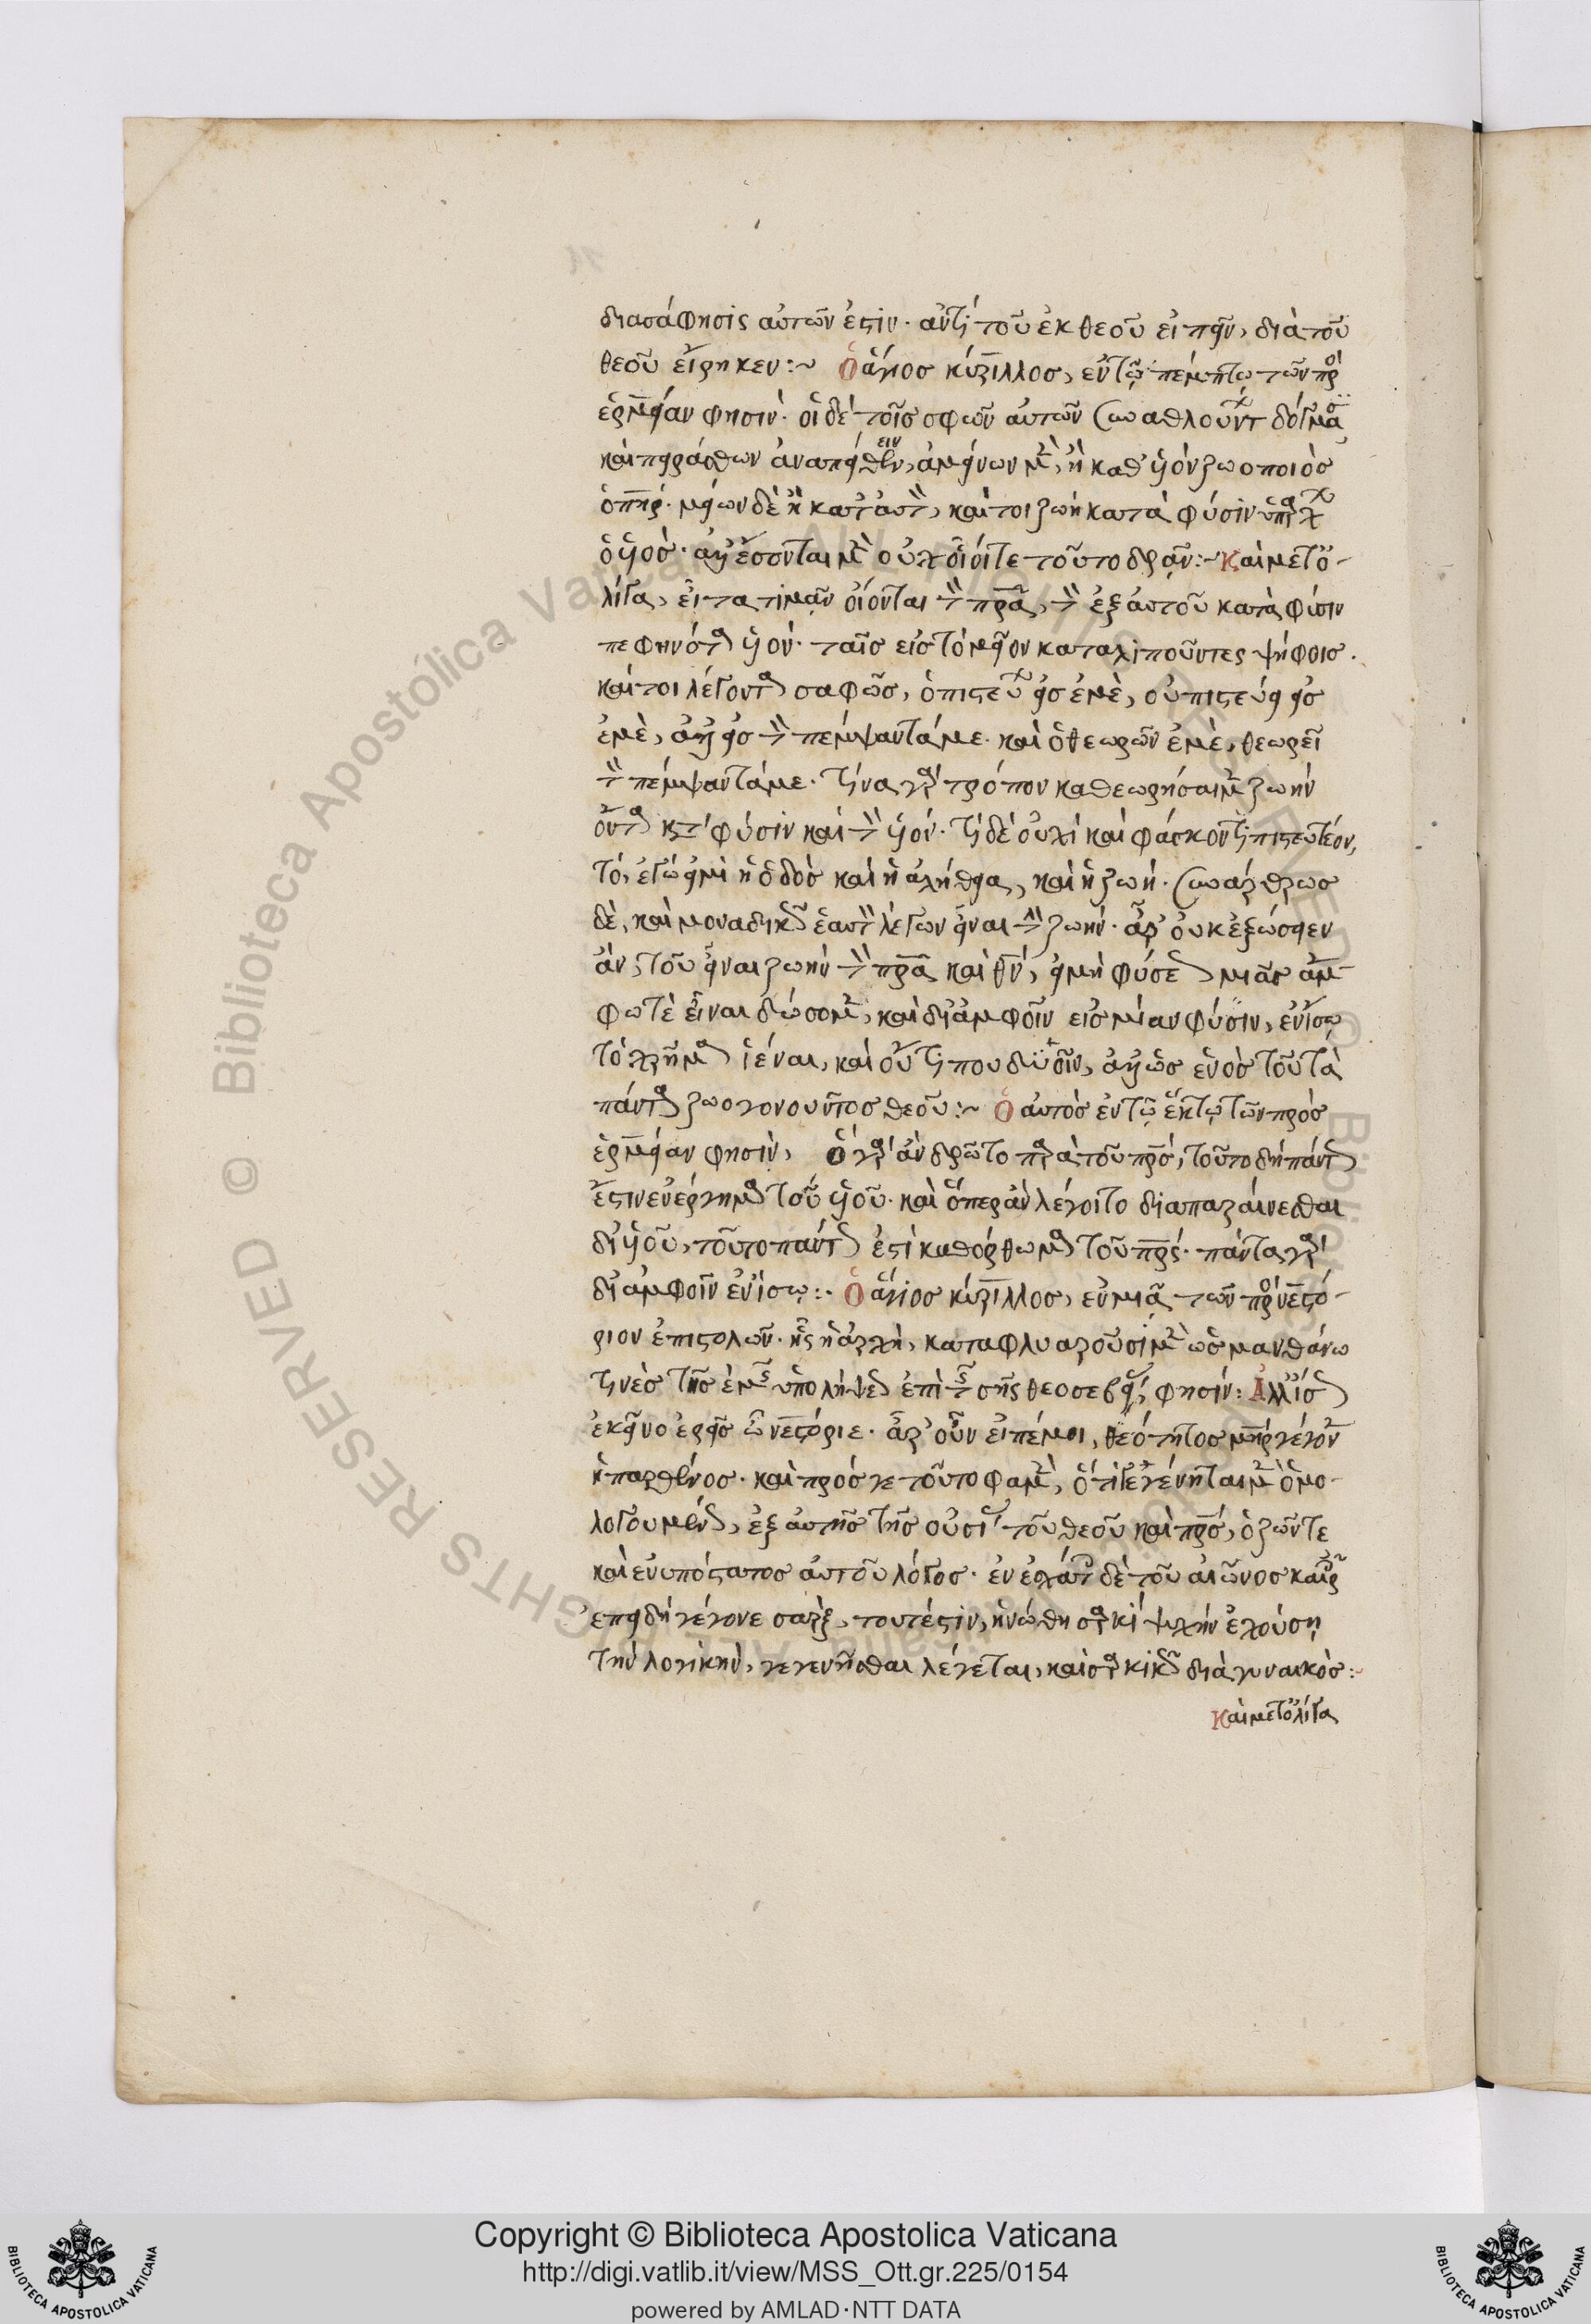 διασάφησις αὐτῶν ἐστίν· ἀντὶ τοῦ ἐκ θεοῦ εἰπεῖν, διὰ τοῦ
θεοῦ εἴρηκεν:~ Ὁ ἅγιος κύριλλος, ἐν τῷ πέμπτῳ τῶν πρὸς
ἑρμείαν φησίν· οἱ δὲ τοῖς σφῶν αὐτῶν συναθλοῦντ δόγμα
καὶ πειρᾶσθων ἀναπείθειν, ἀμείνων μὲν, ἢ καθ' υἱὸν ζωοποιὸς
ὁ πηρ· μείων δὲ ἢ κατ' αὐτὸν, καί τοι ζωὴ κατὰ φύσιν ὑπάρχων
ὁ υἱός· ἀλλ' ἔσονται μὲν οὐχ οἷοί τε τοῦτο δρᾶν:~ Καὶ μετ' ὀ-
λίγα, εἶτα τιμᾶν οἴονται τὸν πρα, τὸν ἐξ αὐτοῦ κατὰ φύσιν
πεφηνότα υἱόν· ταῖς εἰς τὸ μεῖον καταλιποῦντες ψήφοις.
καίτοι λέγοντα σαφῶς, ὁ πιστεύων εἰς ἐμὲ, οὐ πιστεύει εἰς
ἐμὲ, ἀλλ' εἰς τὸν πέμψαντά με· καὶ ὁ θεωρῶν ἐμὲ, θεωρεῖ
τὸν πέμψαντά με· τίνα γὰρ τρόπον καθεωρήσαιμεν ζωὴν
ὄντα κατὰ φύσιν καὶ τὸν υἱόν· τί δὲ οὐχὶ καὶ φάσκοντι πιστευτέον,
τὸ, ἐγώ εἰμι ἡ ὁδὸς καὶ ἡ ἀλήθεια, καὶ ἡ ζωή· συνάρθρως
δὲ, καὶ μοναδικῶς ἑαυτὸν λέγων εἶναι τὴν ζωήν· ἆρ' οὐκ ἐξώσειεν
ἂν, τοῦ εἶναι ζωὴν τὸν πρα καὶ θν, εἰ μὴ φύσεως μιᾶς ἄμ
φω τὲ εἶναι δώσομεν, καὶ δι' ἀμφοῖν εἰς μίαν φύσιν, ἐν ἴσῳ
τὸ χρῆμα ἰέναι, καὶ οὔτι που δυοῖν, ἀλλ' ὡς ἑνὸς τοῦ τὰ
πάντα ζωογονοῦντος θεοῦ:~ Ὁ αὐτὸς ἐν τῷ ἕκτῳ τῶν πρὸς
ἑρμείαν φησὶν, ὃ γὰρ ἂν δρῶτο παρὰ τοῦ πρς, τοῦτο δὴ πάντως
ἔστιν ἐνέργημα τοῦ υἱοῦ· καὶ ὅπερ ἂν λέγοιτο διαπεραίνεσθαι
δι' υἱοῦ, τοῦτο πάντως ἐστὶ κατόρθωμα τοῦ πρς· πάντα γὰρ
δι' ἀμφοῖν ἐν ἴσῳ:· Ὁ ἅγιος κύριλλος, ἐν μιᾷ τῶν πρὸς νεστό-
ριον ἐπιστολῶν· ἧς ἡ ἀρχὴ, καταφλυαροῦσι μὲν ὡς μανθάνω
τινὲς τῆς ἐμῆς ὑπολήψεως ἐπὶ τῆς σῆς θεοσεβείας, φησίν: Ἀλλ' ἴσως
ἐκεῖνο ἐρεῖς ὦ νεστόριε· ἆρ' οὖν εἰπέ μοι, θεότητος μηρ γέγονεν
ἡ παρθένος· καὶ πρός γε τοῦτο φαμὲν, ὅτι γεγένηται μὲν ὁμο-
λογουμένως, ἐξ αὐτῆς τῆς οὐσίας τοῦ θεοῦ καὶ πρς, ὁ ζῶν τε
καὶ ἐνυπόστατος αὐτοῦ λόγος· ἐν ἐσχάτοις δὲ τοῦ αἰῶνος καιροῖς
ἐπειδὴ γέγονε σὰρξ, τουτέστιν, ἡνώθη σαρκὶ ψυχὴν ἐχούσῃ
τὴν λογικὴν, γεγενῆσθαι λέγεται, καὶ σαρκικῶς διὰ γυναικός:
Καὶ μετ' ὀλίγα
Copyright © Biblioteca Apostolica Vaticana
http://digi.vatlib.it/view/MSS_Ott.gr.225/0154
powered by AMLAD·NTT DATA